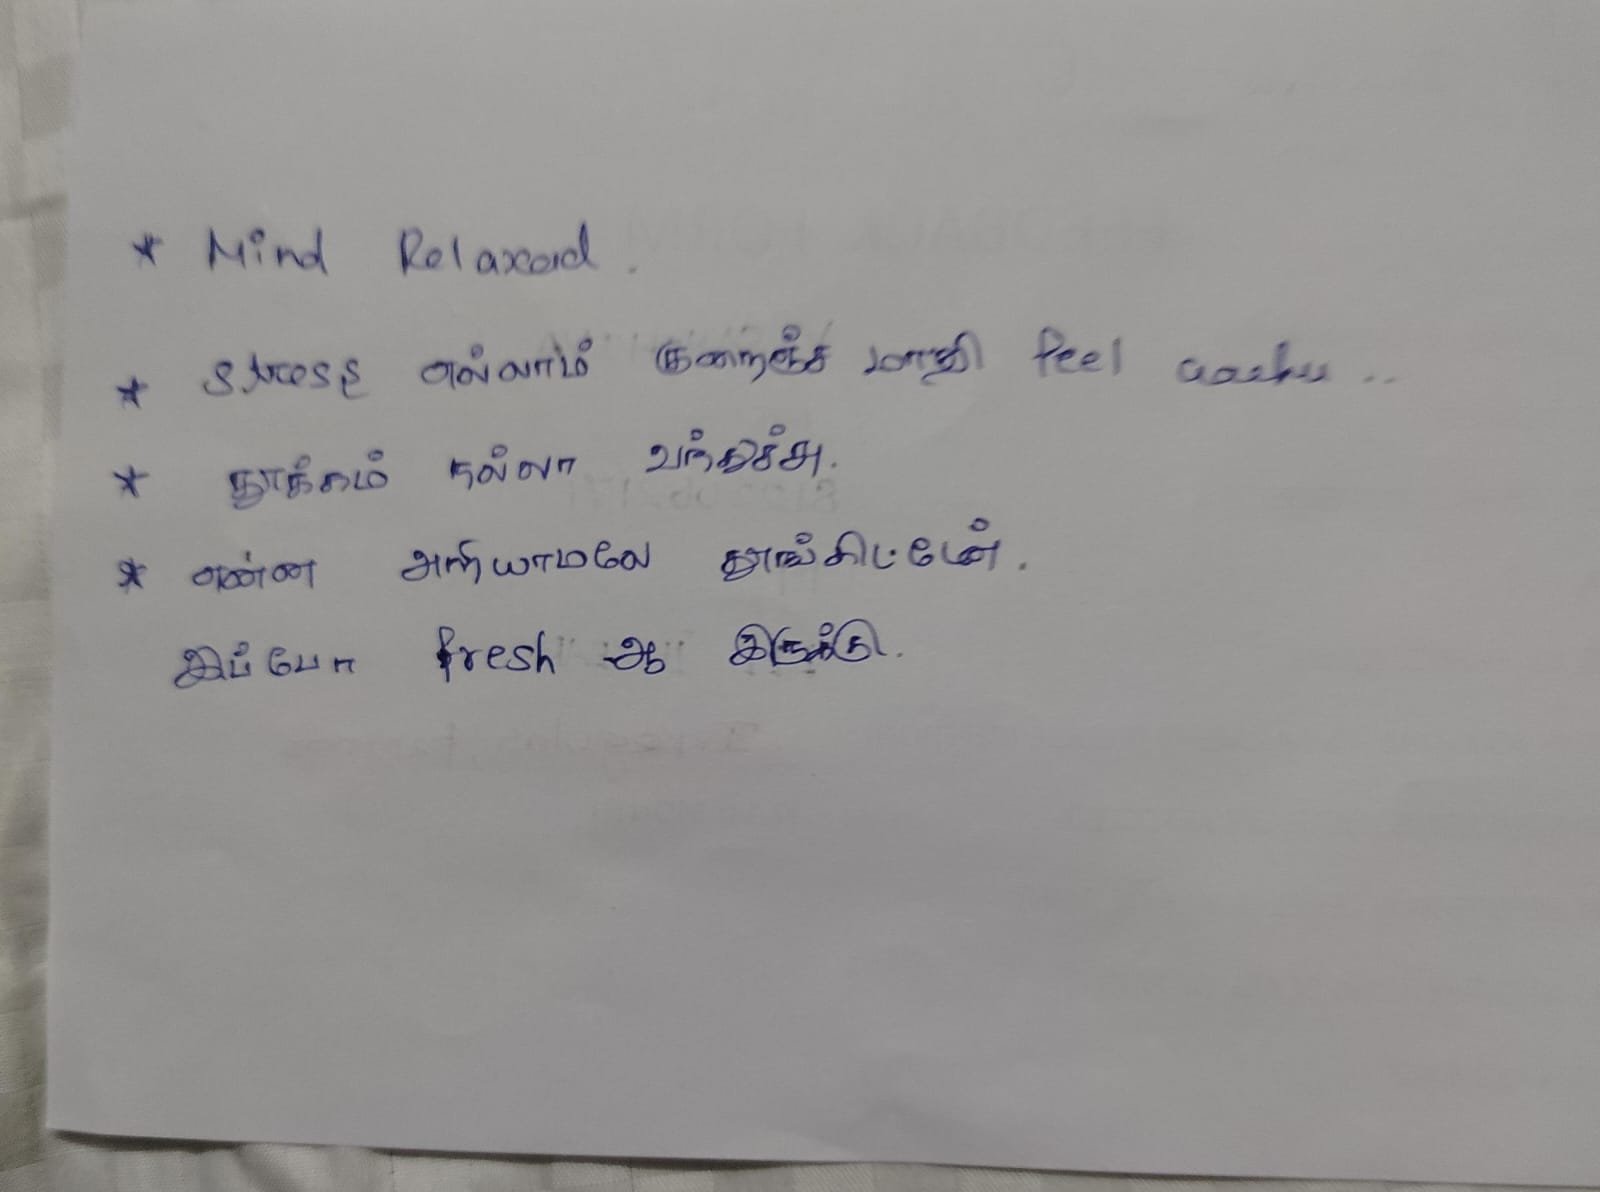 * Mind Relaxed.
* stress எல்லாம் குறைஞ்ச மாதி feel
* தூக்கம் நல்லா வந்துச்சு.
* என்ன அறியாமலே தூங்கிட்டேன்.
இப்போ fresh ஆ இருக்கு.